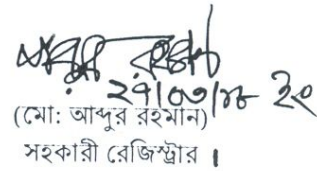 ২৭/০৩/১৮ ইং
(মো: আব্দুর রহমান)
সহকারী রেজিস্ট্রার ।